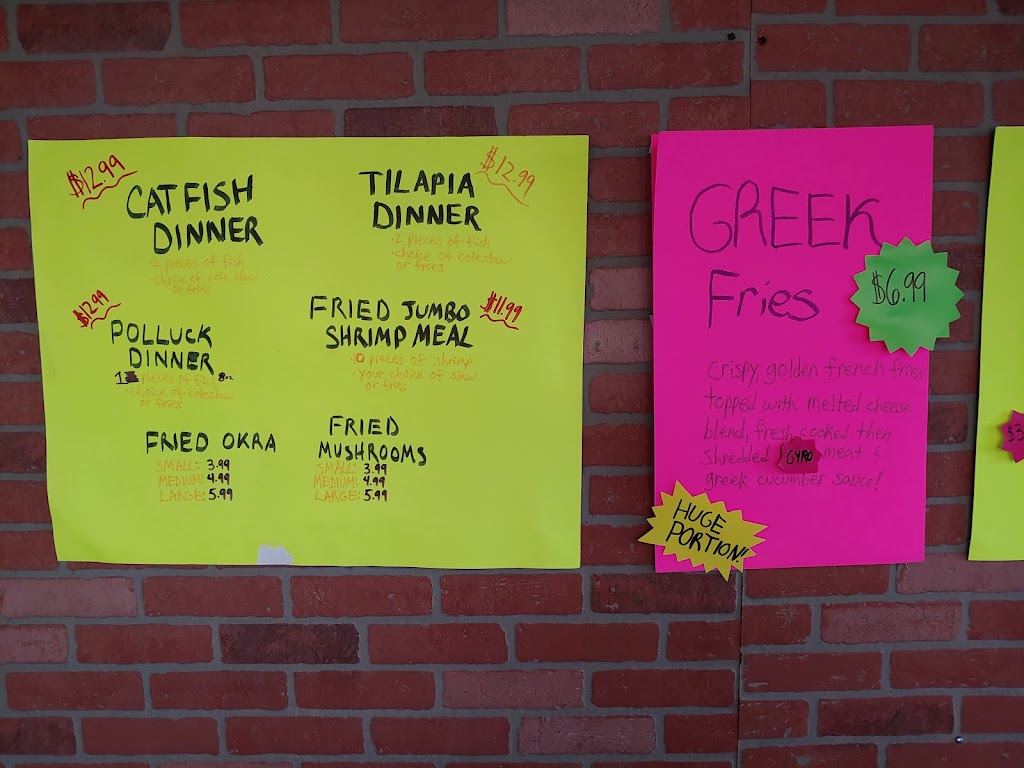 $12.99
CATFISH
DINNER
· 2 pieces of fish
· choice of cole slaw
or fries
TILAPIA
DINNER
$12.99
· 2 pieces of fish
· choice of coleslaw
or fries
$12.99
POLLUCK
DINNER
1 pieces of fish 8oz
· choice of coleslaw
or fries
FRIED JUMBO
SHRIMP MEAL
$11.99
10 pieces of shrimp
· Your choice of slaw
or fries
FRIED OKRA
SMALL: 3.99
MEDIUM: 4.99
LARGE: 5.99
FRIED
MUSHROOMS
SMALL: 3.99
MEDIUM: 4.99
LARGE: 5.99
GREEK
Fries
$6.99
Crispy, golden french fries
topped with melted cheese
blend, fresh cooked then
shredded GYRO meat &
greek cucumber sauce!
HUGE
PORTION!
$3